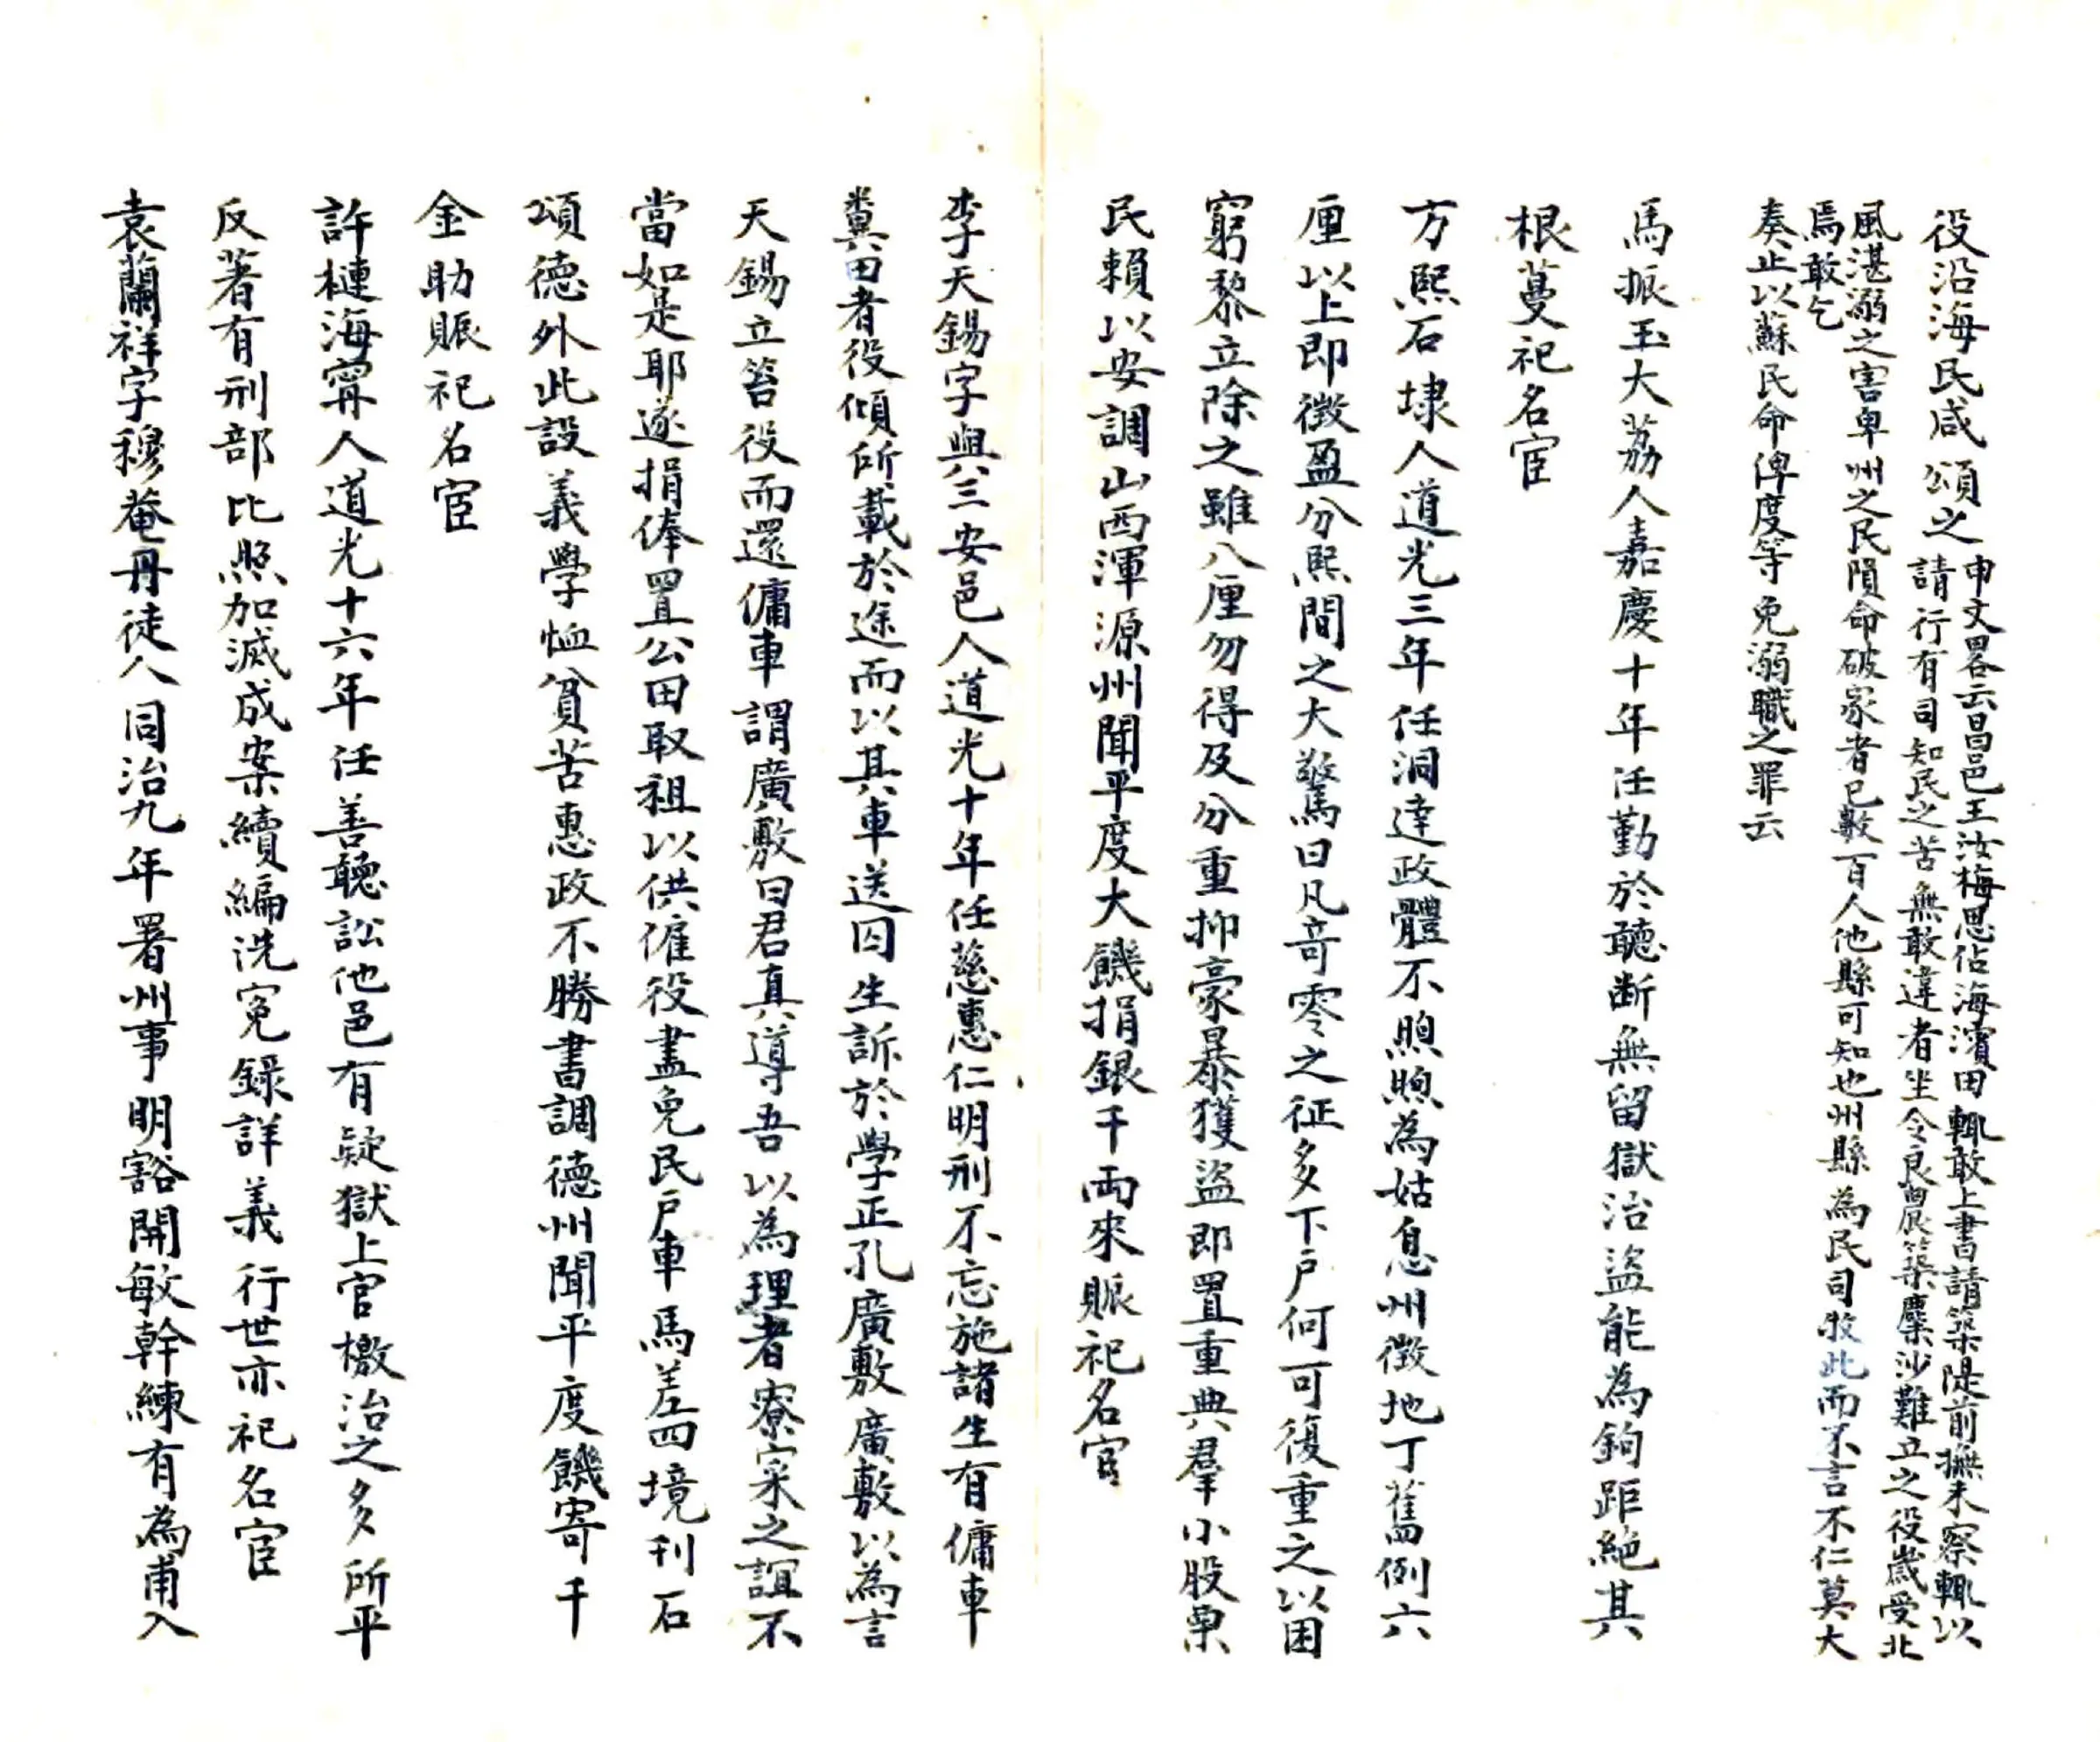 役沿海民咸頌之
申文畧云昌邑王汝梅思佔海濱田輒敢上書請築隄前撫未察輒以
請行有司知民之苦無敢違者坐令良農築麋沙難立之役歲受北
風湛溺之害卑州之民隕命破家者已數百人他縣可知也州縣為民司牧此而不言不仁莫大
焉敢乞
奏止以蘇民命俾度等免溺職之罪云
馬振玉大荔人嘉慶十年任勤於聽斷無留獄治盜能為鉤距絕其
根蔓祀名宦
方熙石埭人道光三年任洞達政體不煦煦為姑息州徵地丁舊例六
厘以上即徵盈分熙間之大驚曰凡竒零之征多下戶何可復重之以困
窮黎立除之雖八厘勿得及分重抑豪暴獲盜即置重典羣小股栗
民賴以安調山西渾源州聞平度大饑捐銀千両來賑祀名宦
李天錫字與三安邑人道光十年任慈惠仁明刑不忘施諸生有傭車
糞田者役傾所載於途而以其車送囚生訴於學正孔廣敷廣敷以為言
天錫立笞役而還傭車謂廣敷曰君真導吾以為理者寮寀之誼不
當如是耶遂捐俸置公田取租以供僱役盡免民戶車馬差四境刊石
頌德外此設義學恤貧苦惠政不勝書調德州聞平度饑寄千
金助賑祀名宦
許槤海寧人道光十六年任善聽訟他邑有疑獄上官檄治之多所平
反著有刑部比照加減成案續編洗冤録詳義行世亦祀名宦
袁蘭祥字穆菴丹徒人同治九年署州事明豁開敏幹練有為甫入